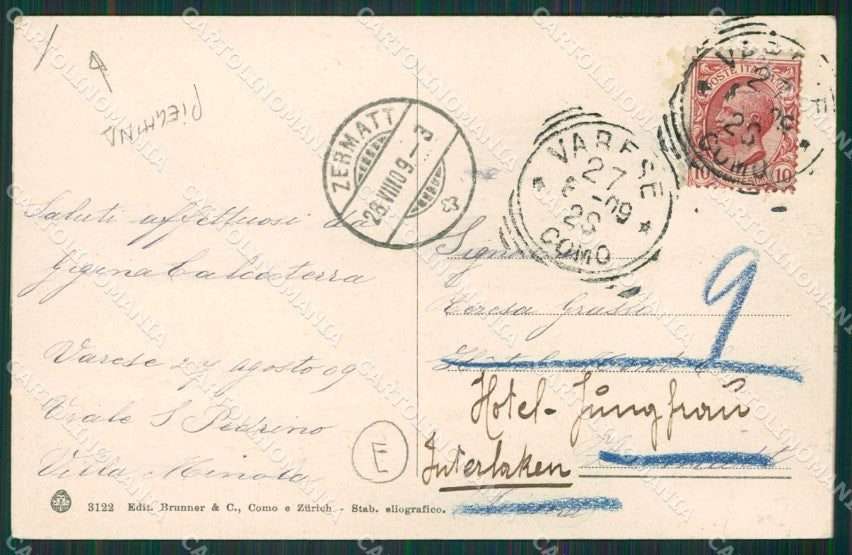 PIEGHINA
ZERMATT
28.VIII.09.-3
VARESE
27
8-09
20
COMO
VARESE
COMO
POSTE ITALIANE
10 10
Saluti affettuosi da
Gigina Calcaterra
Varese 27 agosto 09
Viale S Pedrino
Villa Minola
E
Teresa Grassi
9
Hotel-Jungfrau
Interlaken
3122 Edit. Brunner & C., Como e Zürich - Stab. eliografico.
CARTOLINOMANIA